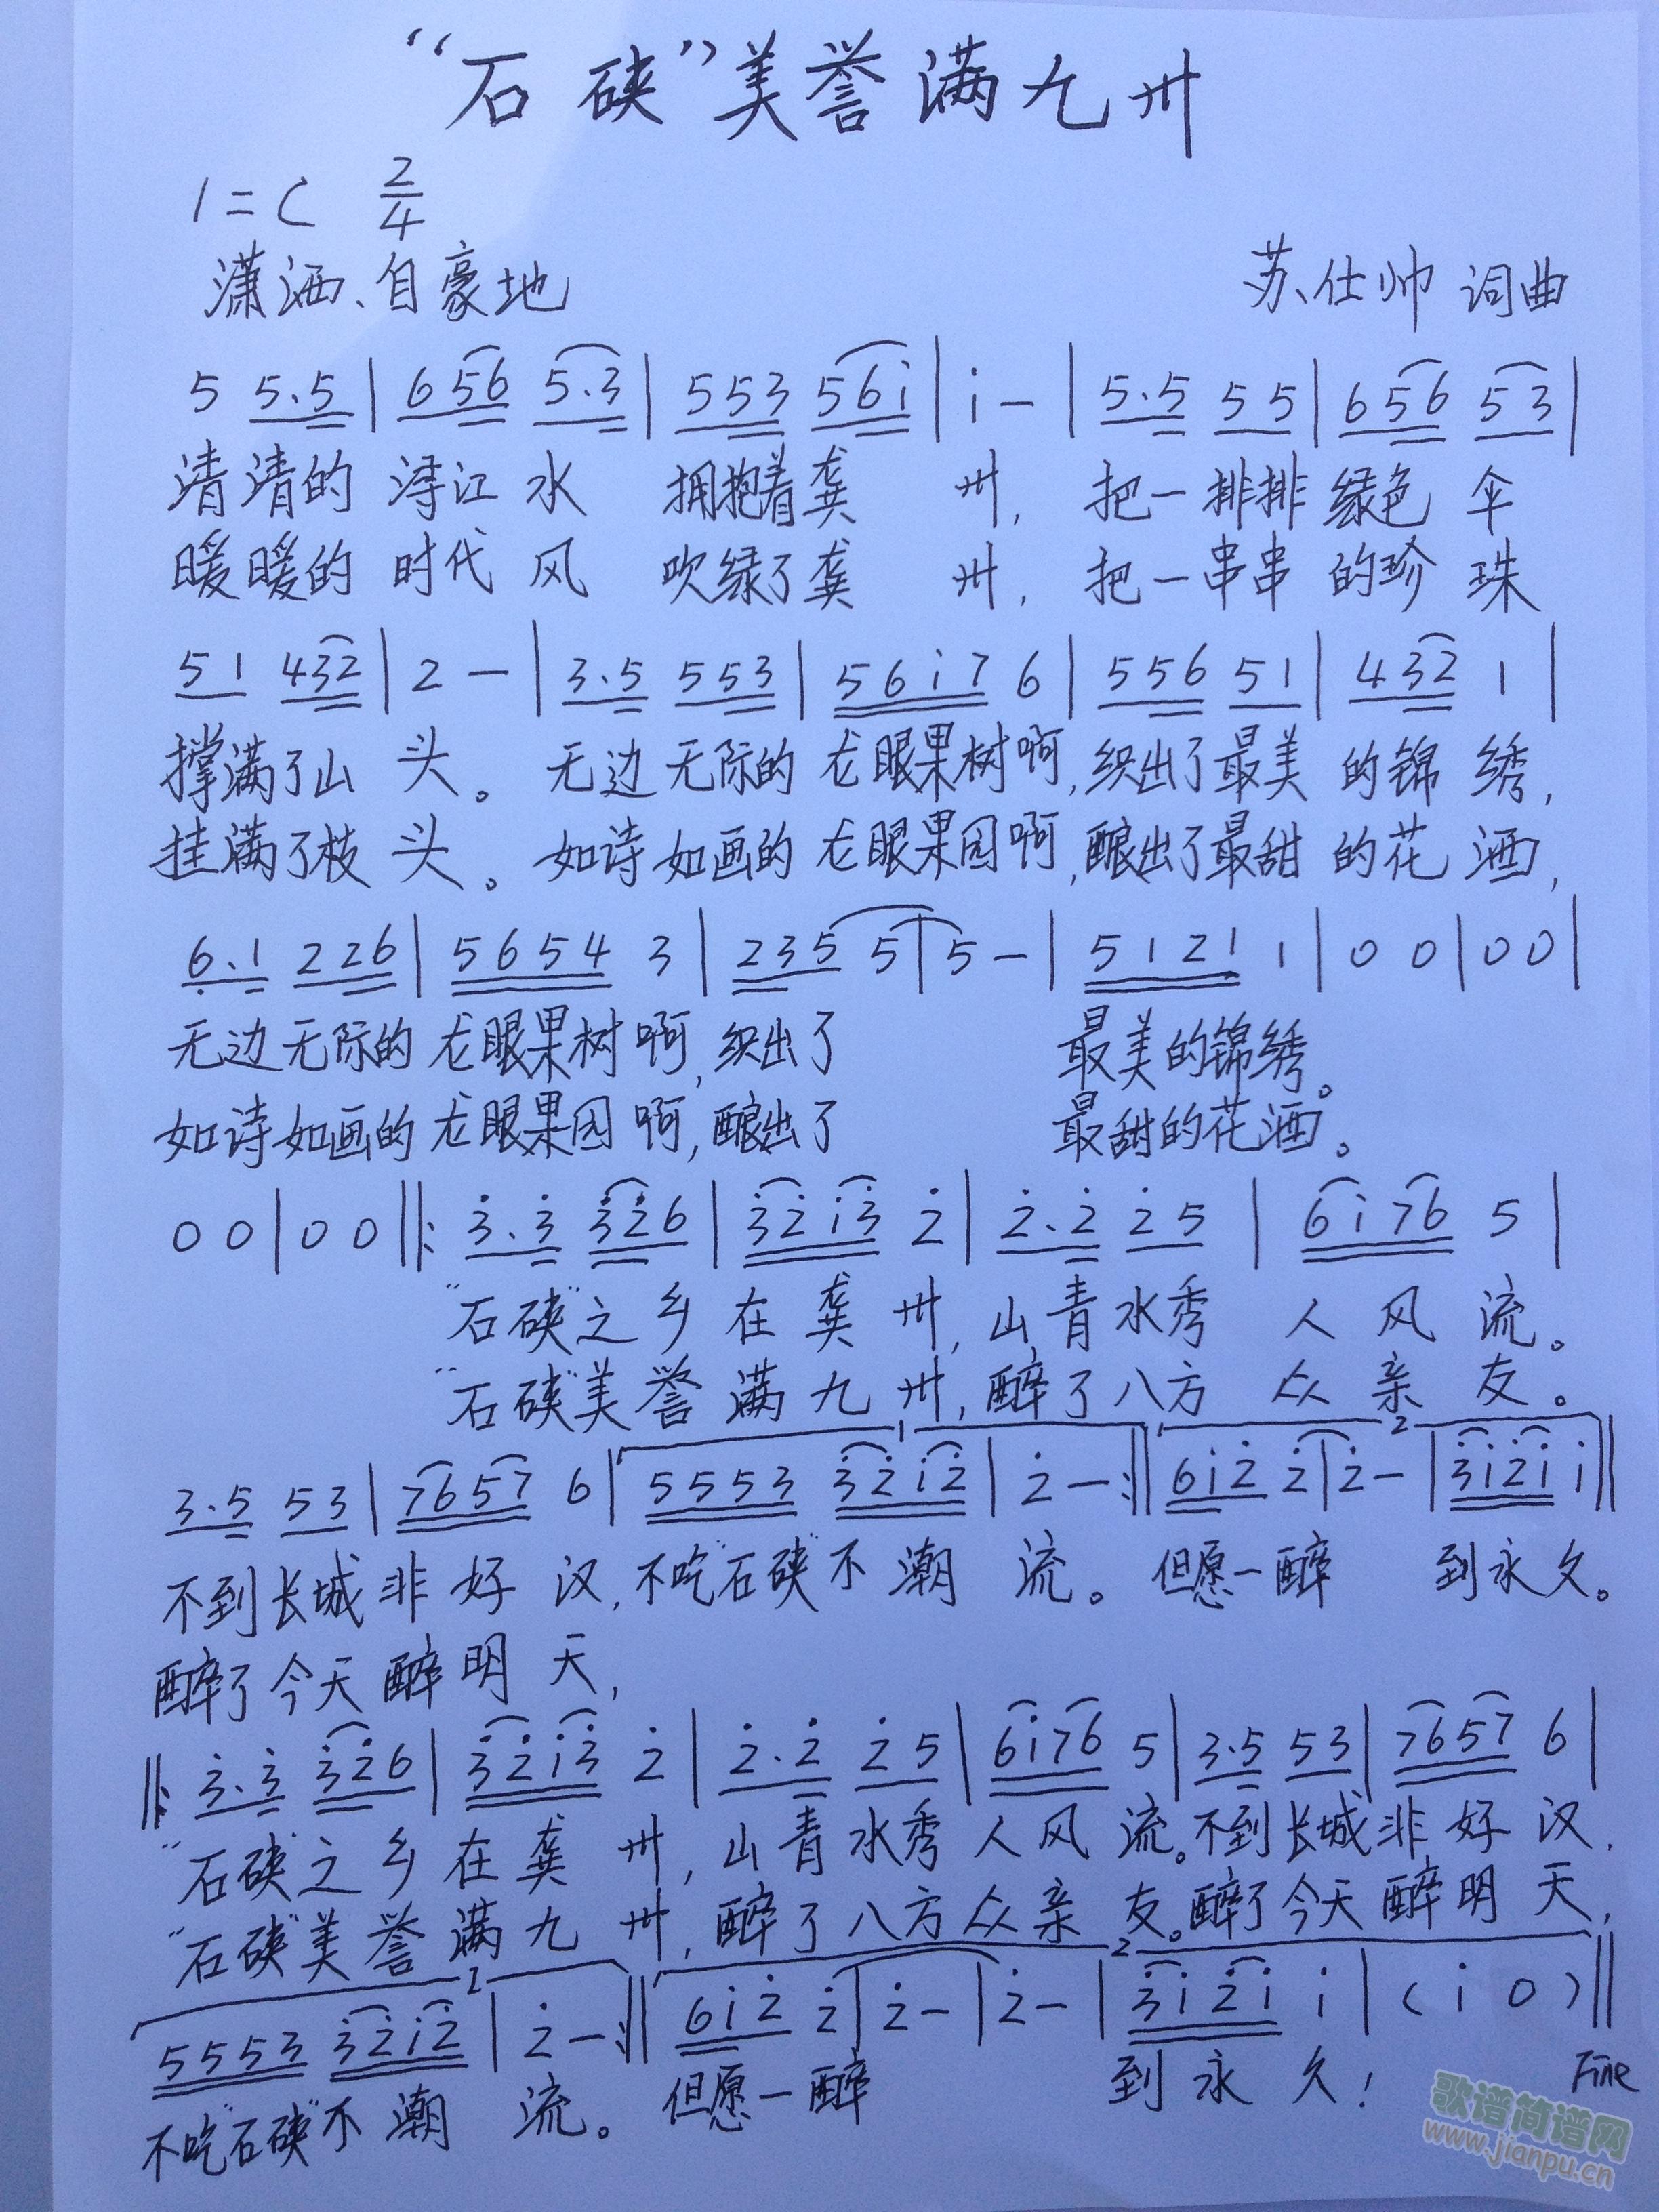 “石硖”美誉满九卅
1=C 2/4
潇洒、自豪地 苏仕帅 词曲
5 5.5 | 6 5 6 5.3 | 5 5 3 5 6 i | i — | 5.5 5 5 | 6 5 6 5 3 |
清清的 浔江水 拥抱着龚 卅, 把一排排 绿色伞
暖暖的 时代风 吹绿了龚 卅, 把一串串 的珍珠
5 1 4 3 2 | 2 — | 3.5 5 5 3 | 5 6 i 7 6 | 5 5 6 5 1 | 4 3 2 1 |
撑满了山头。 无边无际的龙眼果树啊,织出了最美的锦绣,
挂满了枝头。 如诗如画的龙眼果园啊,酿出了最甜的花洒,
6̣.1 2 2 6 | 5 6 5 4 3 | 2 3 5 5 | 5 — | 5 1 2 1 1 | 0 0 | 0 0 |
无边无际的龙眼果树啊,织出了 最美的锦绣。
如诗如画的龙眼果园啊,酿出了 最甜的花洒。
0 0 | 0 0 ‖: 3̇.3̇ 3̇ 2̇ 6 | 3̇ 2̇ i 3̇ 2̇ | 2̇.2̇ 2̇ 5 | 6 i 7 6 5 |
“石硖”之乡在龚卅,山青水秀 人风流。
“石硖”美誉满九卅,醉了八方 众亲友。
1 2
3.5 5 3 | 7 6 5 7 6 | 5 5 5 3 3̇ 2̇ i 2̇ | 2̇ — :‖ 6 i 2̇ 2̇ | 2̇ — | 3̇ i 2̇ i i ‖
不到长城非好汉,不吃“石硖”不潮流。但愿一醉 到永久。
醉了今天醉明天,
‖: 3̇.3̇ 3̇ 2̇ 6 | 3̇ 2̇ i 3̇ 2̇ | 2̇.2̇ 2̇ 5 | 6 i 7 6 5 | 3.5 5 3 | 7 6 5 7 6 |
“石硖”之乡在龚卅,山青水秀人风流。不到长城非好汉,
“石硖”美誉满九卅,醉了八方众亲友。醉了今天醉明天,
1 2
5 5 5 3 3̇ 2̇ i 2̇ | 2̇ — :‖ 6 i 2̇ 2̇ | 2̇ — | 2̇ — | 3̇ i 2̇ i i | ( i 0 ) ‖
Fine
不吃“石硖”不潮流。但愿一醉 到永久!
歌谱简谱网
www.jianpu.cn